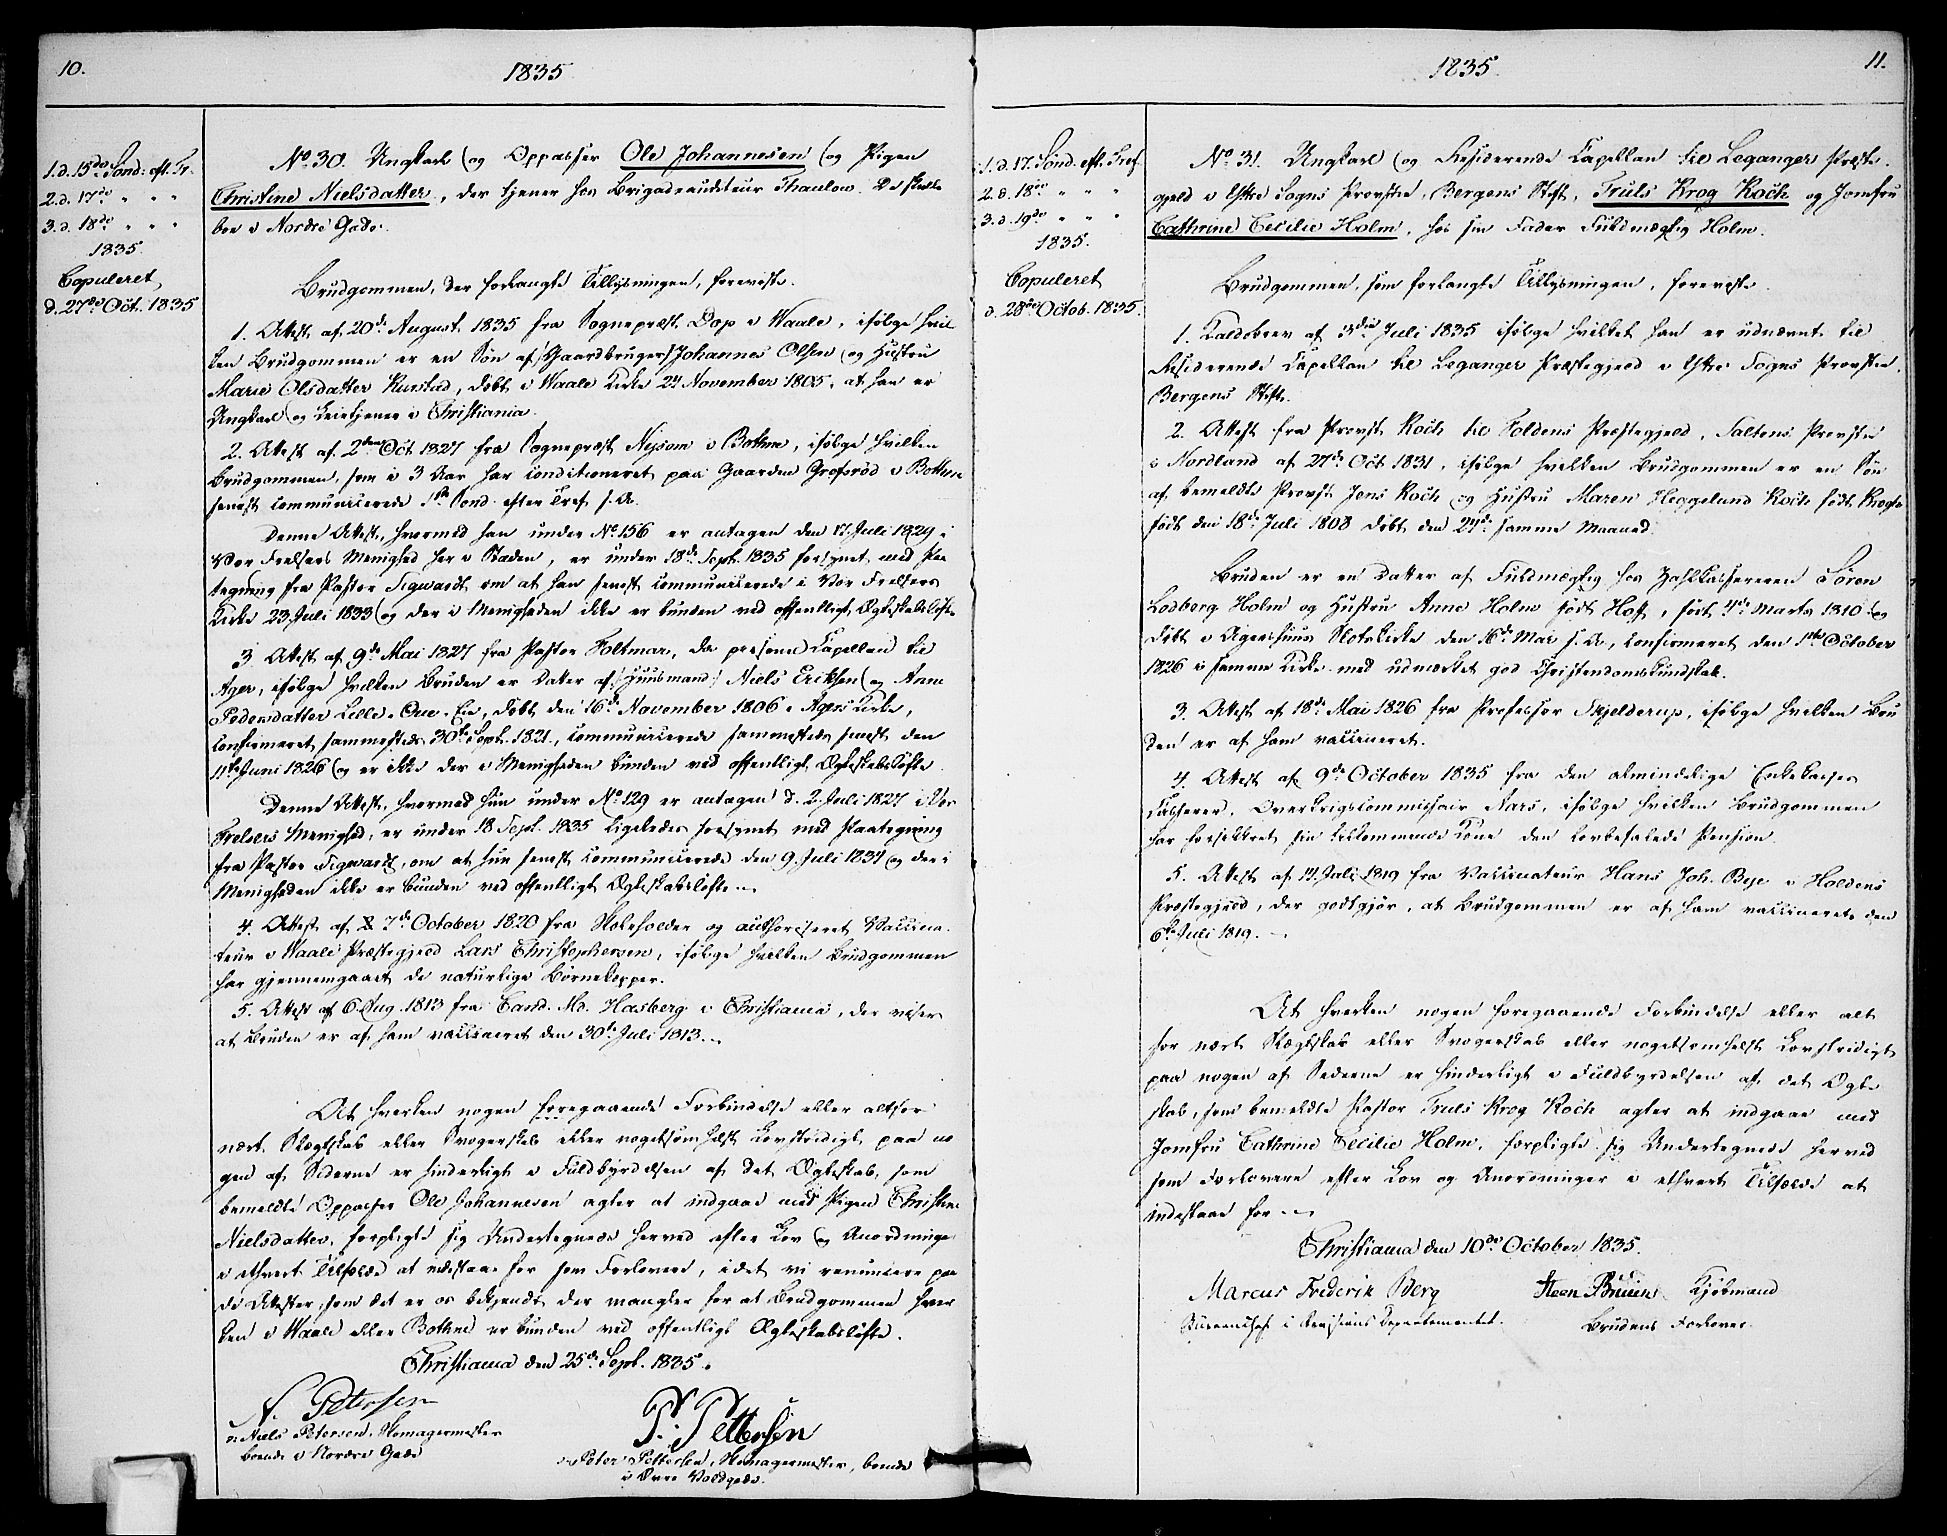 10.
1835
1. d. 15de Sønd: eft. Tr.
2. d. 17de " " "
3. d. 18de " " "
1835.
Copuleret
d. 27de Oct. 1835
No 30. Ungkarl og Oppasser Ole Johannesen og Pigen
Christine Nielsdatter, der tjener hos Brigadeauditeur Thaulow. De skulle
boe i Nordre Gade.
Brudgommen, der forlangte Tillysningen, foreviste.
1. Attest af 20de August 1835 fra Sognepræst Dop i Waale, ifølge hvil
ken Brudgommen er en Søn af Gaardbruger Johannes Olsen og Hustru
Marie Olsdatter Kurstad, døbt i Waale Kirke 24 November 1805, at han er
Ungkarl og Leietjener i Christiania.
2. Attest af 2den Oct 1827 fra Sognepræst Nissom i Bothne, ifølge hvilken
Brudgommen, som i 3 Aar har conditioneret paa Gaarden Grofsrød i Bothne
senest communicerede 1ste Sønd. efter Tref. s. A.
Denne Attest, hvormed han under No 156 er antagen den 17 Juli 1829 i
Vor Frelsers Menighed her i Staden, er under 18de Sept. 1835 forsynet med Paa
tegning fra Pastor Sigwardt om at han senest communicerede i Vor Frelsers
Kirke 23 Juli 1833 og der i Menigheden ikke er bunden ved offentligt Ægteskabsløfte
3. Attest af 9de Mai 1827 fra Pastor Holtmar, da personel Capellan til
Ager, ifølge hvilken Bruden er Datter af Huusmand Niels Eriksen og Anne
Pedersdatter Lille-Oue-Eie, døbt den 16de November 1806 i Agers Kirke,
confirmeret sammesteds 30te Sept. 1821, communicerede sammesteds senest den
11te Juni 1826 og er ikke der i Menigheden bunden ved offentligt Ægteskabsløfte
Denne Attest, hvormed hun under No 129 er antagen d. 2 Juli 1827 i Vor
Frelsers Menighed, er under 18 Sept. 1835 ligeledes forsynet med Paategning
fra Pastor Sigwardt, om at hun senest communicerede den 9. Juli 1834 og der i
Menigheden ikke er bunden ved offentligt Ægteskabsløfte
4. Attest af 7de October 1820 fra Skoleholder og authoriseret Vaccina
teur i Waale Præstegjeld Lars Christophersen, ifølge hvilken Brudgommen
har gjennemgaaet de naturlige Børnekopper.
5. Attest af 6 Aug. 1813 fra Cand. Md. Hasberg i Christiania, der viser
at Bruden er af ham vaccineret den 30te Juli 1813.
At hverken nogen foregaaende Forbindelse eller altfor
nært Slægtskab eller Svogerskab eller nogetsomhelst Lovstridigt paa no
gen af Siderne er hinderligt i Fuldbyrdelsen af det Ægteskab, som
bemeldte Oppasser Ole Johannesen agter at indgaae med Pigen Christine
Nielsdatter, forpligte sig Undertegnede herved efter Lov og Anordninger
i ethvert Tilfælde at indestaae for som Forlovere, idet vi renuncere paa
de Attester, som det er os bekjendt der mangler for at Brudgommen hver
ken i Waale eller Bothne er bunden ved offentligt Ægteskabsløfte.
Christiania den 25de Sept. 1835.
N. Petersen
Niels Petersen, Skomagermester
boende i Nordre Gade
P. Pettersen
Peter Pettersen, Skomagermester, boende
i Øvre Voldgade.
1835.
11.
1. d. 17. Sønd. eft. Tref.
2. d. 18de " " "
3. d. 19de " " "
1835.
Copuleret
d. 28de Octob. 1835.
No 31. Ungkarl og Residerende Capellan til Leganger Præste-
gjeld i Ytre Sogns Provstie, Bergens Stift, Truls Krog Koch og Jomfru
Cathrine Cecilie Holm, hos sin Fader Fuldmægtig Holm.
Brudgommen, som forlangte Tillysningen, foreviste.
1. Kaldsbrev af 3die Juli 1835 ifølge hvilket han er udnævnt til
Residerende Capellan til Leganger Præstegjeld i Ytre Sogns Provstie,
Bergens Stift.
2. Attest fra Provst Koch til Foldens Præstegjeld, Saltens Provstie
i Nordland af 27de Oct 1831, ifølge hvilken Brudgommen er en Søn
af bemeldte Provst Jens Koch og Hustru Maren Heggelund Koch født Krogh
født den 18de Juli 1808 døbt den 24de samme Maaned.
Bruden er en Datter af Fuldmægtig hos Zahlkassereren Søren
Lodberg Holm og Hustru Anne Holm født Hoff, født 4de Marts 1810 og
døbt i Agershuus Slotskirke den 16de Mai s. A., confirmeret den 1ste October
1826 i samme Kirke med udmærket god Christendomskundskab.
3. Attest af 18de Mai 1826 fra Professor Skjelderup, ifølge hvilken Bru
den er af ham vaccineret.
4. Attest af 9de October 1835 fra den almindelige Enkekasses
Casserer, Overkrigscommissair Aars, ifølge hvilken Brudgommen
har forsikkret sin tilkommende Kone den lovbefalede Pension.
5. Attest af 14 Juli 1819 fra Vaccinateur Hans Joh. Bye i Holdens
Præstegjeld, der godtgjør, at Brudgommen er af ham vaccineret den
6te Juli 1819.
At hverken nogen foregaaende Forbindelse eller alt
for nært Slægtskab eller Svogerskab eller nogetsomhelst Lovstridigt
paa nogen af Siderne er hinderligt i Fuldbyrdelsen af det Ægte
skab, som bemeldte Pastor Truls Krog Koch agter at indgaae med
Jomfru Cathrine Cecilie Holm, forpligte sig Undertegnede herved
som Forlovere efter Lov og Anordninger i ethvert Tilfælde at
indestaae for
Christiania den 10de October 1835.
Marcus Frederik Berg
Bureauchef i Revisions Departementet.
Steen Bruun Kjøbmand
Brudens Forlover